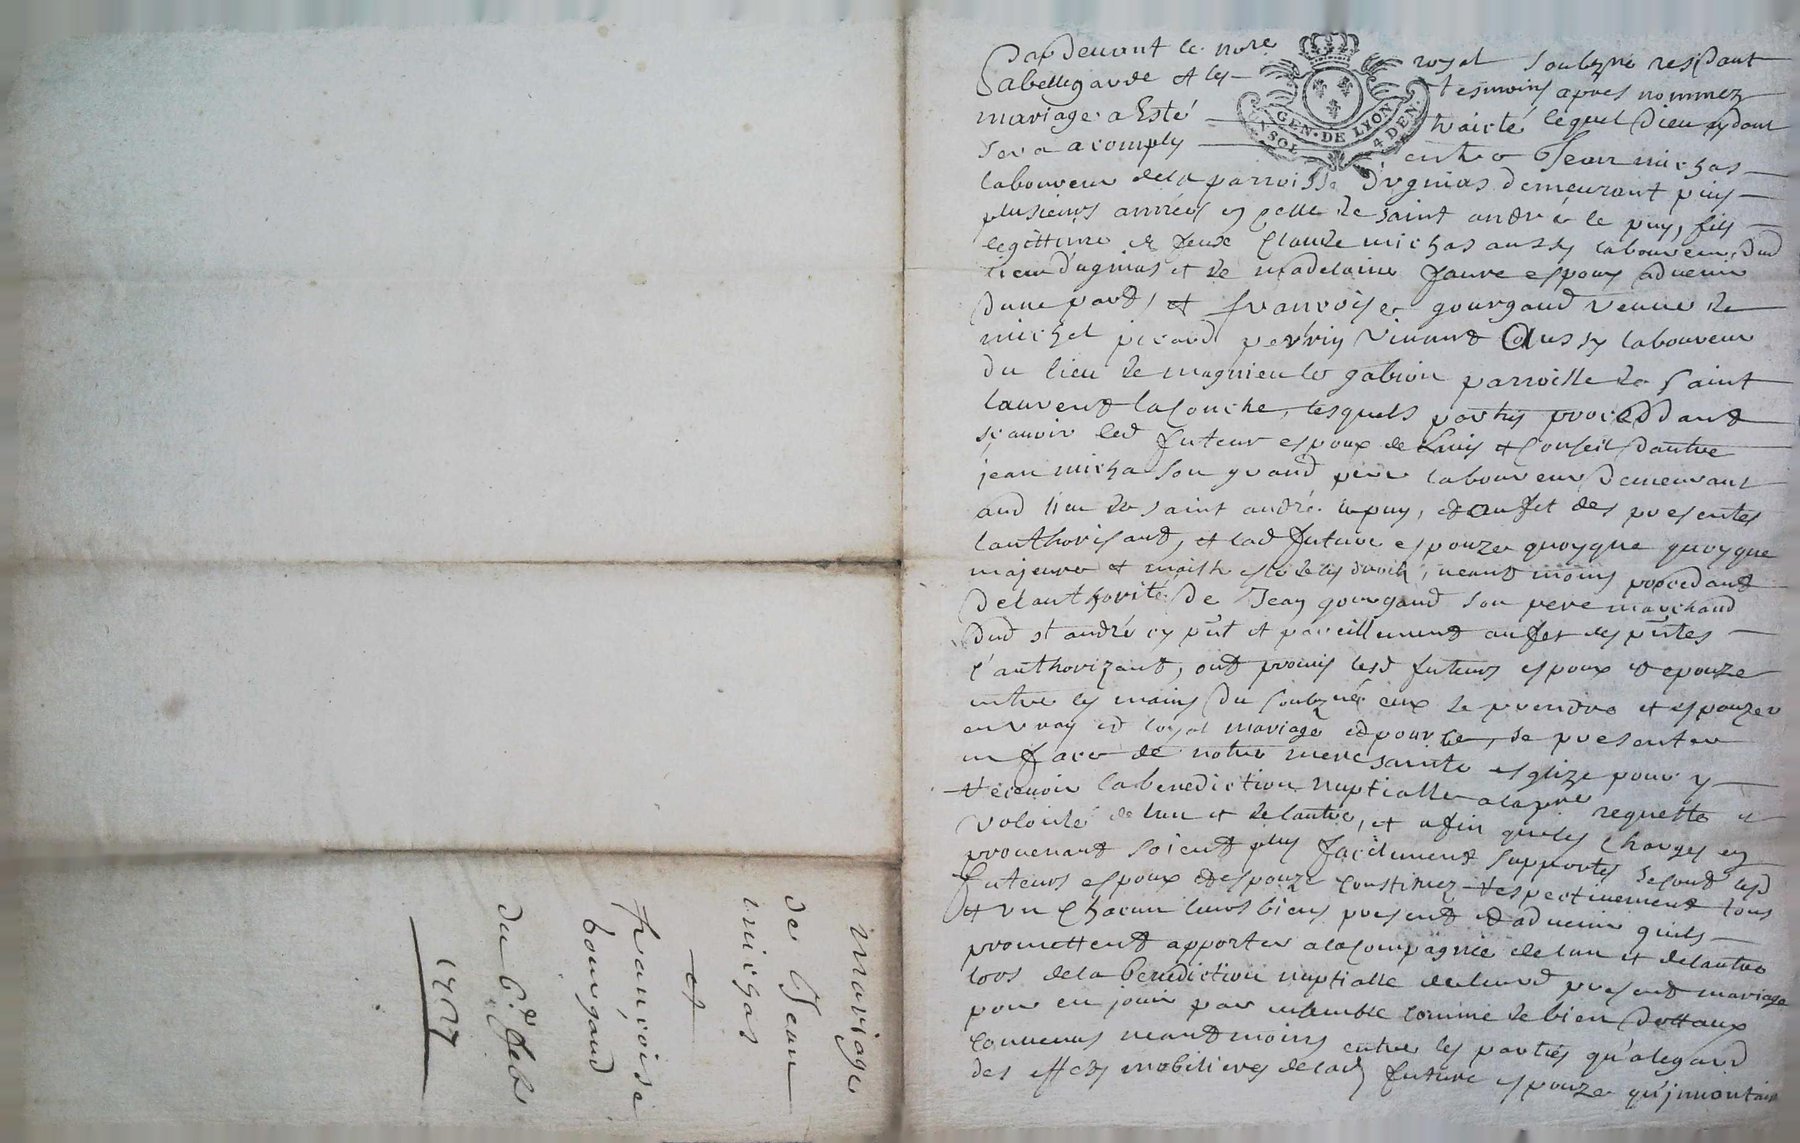 mariage
de Jean
michas
et
francoise
bourgaud
du 6.e feb.
1727
Pardevant le no.re royal soubzné residant
abellegarde et les tesmoins apres nommez
mariage a Esté traicté lequel Dieu aydant
sera acomply entre Jean michas
laboureur dela parroisse d'ugnias demeurant puis
plusieurs années en celle de saint andré le puy, fils
legittime de feux Claude michas aussy laboureur dud
lieu d'ugnias et de madelaine faure espoux advenir
dune part, et francoise gourgaud veuve de
michel picard perrin vivant Aussy laboureur
du lieu de magnieu le gabion parroisse de saint
laurent laConche, lesquels parties proceddant
sçavoir led futeur espoux de Lavis et Conseil dautre
jean micha son grand pere laboureur demeurant
aud lieu de saint andré lepuy, et aufet des presentes
lauthorisant, et lad future espouze quoyque quoyque
majeure et maistresse de ses droits, neantmoins procedant
delauthorité de Jean gourgaud son pere marchand
dud st andré cy pnt et pareillement aufet des pntes
l'authorizant, ont promis lesd futeurs espoux et epouze
entre les mains du soubzné eux se prendre et espouzer
en vray et loyal mariage et pour ce, se presenter
en face de notre mere sainte esglize pour y
recevoir la benediction nuptialle alapre requette et
volonté de lun et de lautre, et afin que les Charges en
provenant soient plus facilement supportés se sont lesd
futeurs espoux et espouze constituez respectivement tous
et un Chacun leurs biens present et advenir quils
promettent apporter alacompagnie de lun et delautre
lors dela benediction nuptialle deleurd present mariage
pour en jouir par ensemble comme de bien dottaux
convenus neantmoins entre les parties qu'alegard
des effets mobiliers delad future espouze qu'jmontain
GEN. DE LYON
1 SOL 4 DEN.